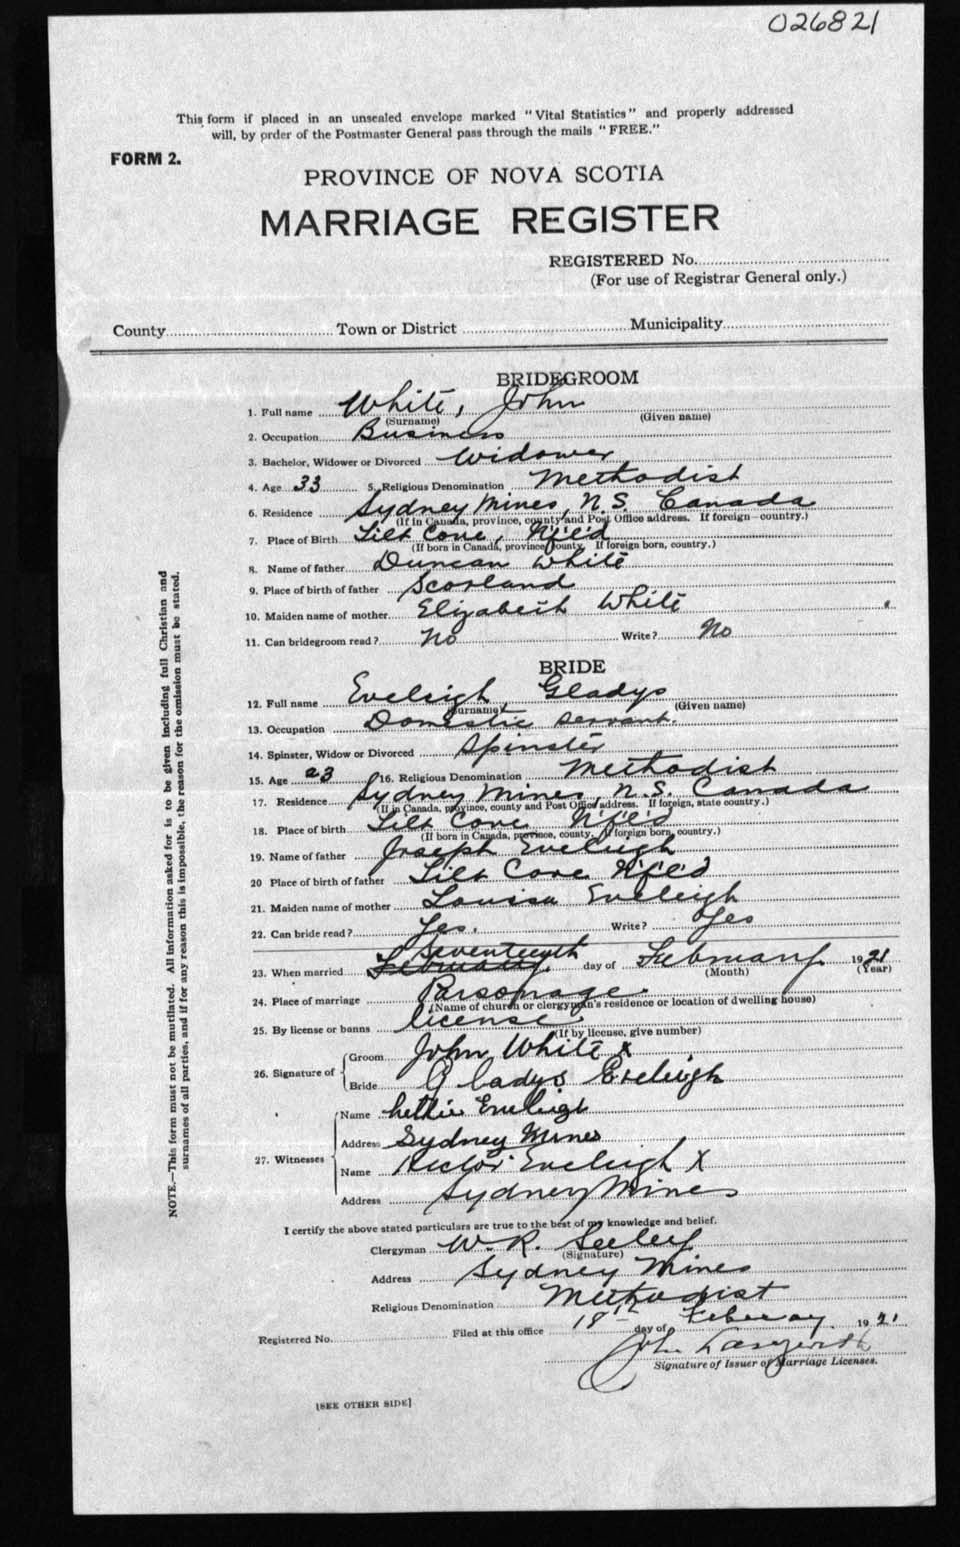 026821
This form if placed in an unsealed envelope marked "Vital Statistics" and properly addressed
will, by order of the Postmaster General pass through the mails "FREE."
FORM 2.
PROVINCE OF NOVA SCOTIA
MARRIAGE REGISTER
REGISTERED No.
(For use of Registrar General only.)
County Town or District Municipality
BRIDEGROOM
1. Full name White, John
(Surname) (Given name)
2. Occupation Business
3. Bachelor, Widower or Divorced Widower
4. Age 33 5. Religious Denomination Methodist
6. Residence Sydney Mines, N.S. Canada
(If in Canada, province, county and Post Office address. If foreign—country.)
7. Place of Birth Tilt Cove, Nf'l'd
(If born in Canada, province county. If foreign born, country.)
8. Name of father Duncan White
9. Place of birth of father Scotland
10. Maiden name of mother Elizabeth White
11. Can bridegroom read? No Write? No
BRIDE
12. Full name Eveleigh Gladys
(Surname) (Given name)
13. Occupation Domestic servant.
14. Spinster, Widow or Divorced Spinster
15. Age 23 16. Religious Denomination Methodist
17. Residence Sydney Mines, N.S. Canada
(If in Canada, province, county and Post Office address. If foreign, state country.)
18. Place of birth Tilt Cove Nf'l'd
(If born in Canada, province, county, If foreign born, country.)
19. Name of father Joseph Eveleigh
20 Place of birth of father Tilt Cove Nf'l'd
21. Maiden name of mother Louisa Eveleigh
22. Can bride read? Yes. Write? Yes
Seventeenth
23. When married February day of February 1921
(Month) (Year)
24. Place of marriage Parsonage
(Name of church or clergyman's residence or location of dwelling house)
25. By license or banns license
(If by license, give number)
26. Signature of Groom John White x
Bride Gladys Eveleigh
27. Witnesses Name Eveleigh
Address Sydney Mines
Name Hector Eveleigh X
Address Sydney Mines
I certify the above stated particulars are true to the best of my knowledge and belief.
Clergyman W. R. Seeley
(Signature)
Address Sydney Mines
Religious Denomination Methodist
Registered No. Filed at this office 18th day of February 1921
John
Signature of Issuer of Marriage Licenses.
[SEE OTHER SIDE]
NOTE.—This form must not be mutilated. All information asked for is to be given including full Christian and
surnames of all parties, and if for any reason this is impossible, the reason for the omission must be stated.